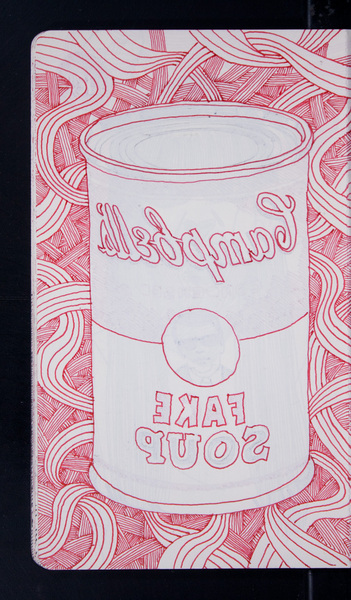 Campbell's
FAKE
SOUP